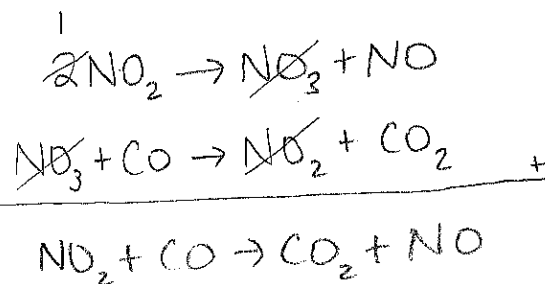 1
2NO₂ → NO₃ + NO
NO₃ + CO → NO₂ + CO₂ +
NO₂ + CO → CO₂ + NO